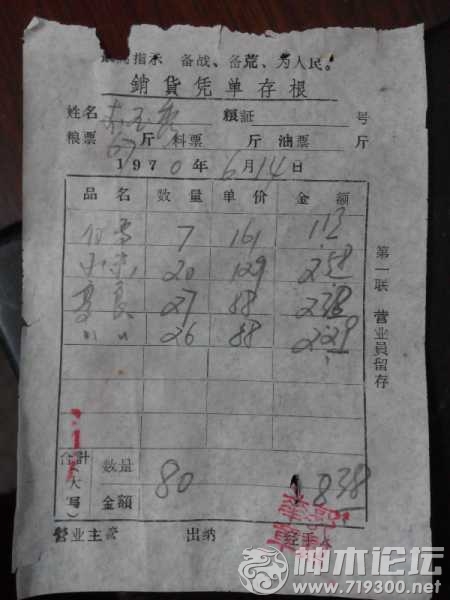 最高指示 备战、备荒、为人民。
銷貨凭单存根
姓名 糧証 号
粮票 67 斤 料票 斤 油票 斤
1970年6月14日
品名 数量 单价 金額
7 161 113
小米 20 129 258
高良 27 88 238
〃 〃 26 88 229
合計(大写) 数量 80 838
金額
营业主管 出納 经手人
第一联 营业員留存
神木论坛
www.719300.net